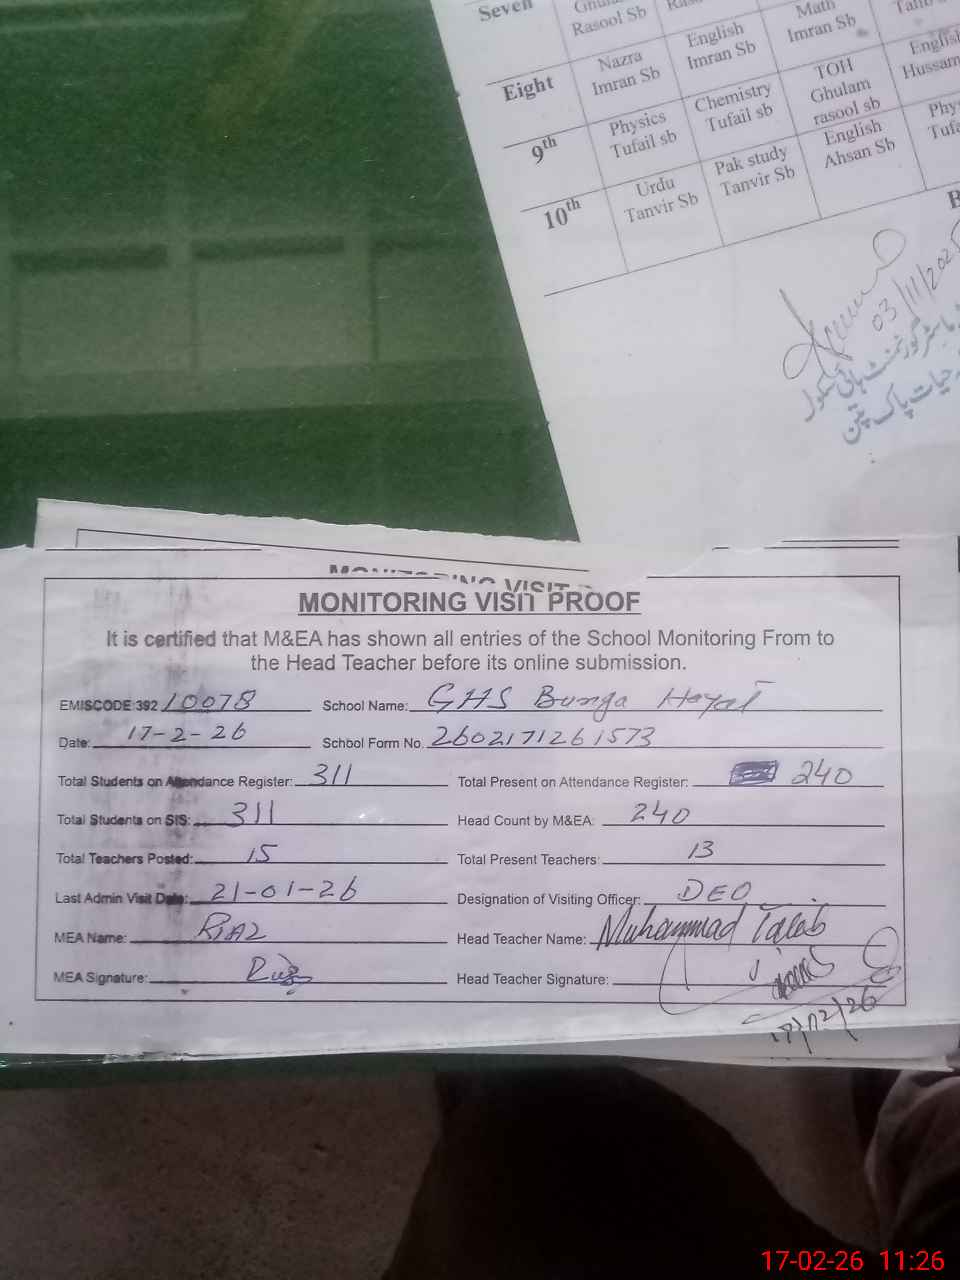 Seven Rasool Sb Imran Sb
Math
English
Eight Nazra Imran Sb English Imran Sb TOH Ghulam rasool sb English Hussam
9th Physics Tufail sb Chemistry Tufail sb English Ahsan Sb
10th Urdu Tanvir Sb Pak study Tanvir Sb
03/11/2025
MONITORING VISIT PROOF
It is certified that M&EA has shown all entries of the School Monitoring From to
the Head Teacher before its online submission.
EMISCODE:392 10078 School Name: GHS Bunga Hayat
Date: 17-2-26 School Form No. 2602171261573
Total Students on Attendance Register: 311 Total Present on Attendance Register: 240
Total Students on SIS: 311 Head Count by M&EA: 240
Total Teachers Posted: 15 Total Present Teachers: 13
Last Admin Visit Date: 21-01-26 Designation of Visiting Officer: DEO
MEA Name: RIAZ Head Teacher Name: Muhammad Taleb
MEA Signature: Head Teacher Signature:
17-02-26 11:26